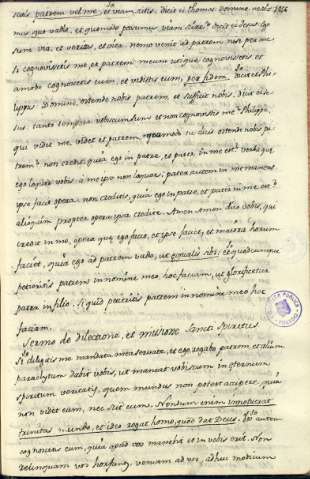 scitis, patrem vel me, et viam scitis. dicit ei thomas domine nesci-
mus quo vadis, et quomodo possumus viam scire? dicit ei Iesus ego
sum via, et veritas, et vita nemo venit ad patrem nisi per me
si cognovissetis me, et patrem meum utique cognovissetis et
amodo cognoscetis eum, et vidistis eum, per fidem. dicit ei Phi-
lippus Domine, ostende nobis patrem, et sufficit nobis. dicit ei Ie-
sus tanto tempore vobiscum sum et non cognovistis me? Philippe,
qui videt me, videt et patrem quomodo tu dicis ostende nobis pa-
trem? non credis, quia ego in patre, et pater in me est? verba que
ego loquor vobis à me ipso non loquor; pater autem in me manens
ipse facit opera. non creditis, quia ego in patre, et pater in me est?
alioquin propter opera ipsa credite. Amen Amen dico vobis, qui
credit in me, opera que ego facio, et ipse faciet, et maiora horum
faciet, quia ego ad patrem vado, et quodcumque
petieritis patrem in nomine meo hoc faciam, ut glorificetur
pater in filio. si quid petieritis patrem in nomine meo hoc
faciam.
Sermo de dilectione, et missione sancti spiritus
Si diligitis me mandata mea servate, et ego rogabo patrem et alium
paraclytum dabit vobis, ut maneat vobiscum in eternum
spiritum veritatis, quem mundus non potest accipere, quia
non videt eum, nec scit eum. Nondum enim innotuerat
trinitas mundo, et ideo rogat homo, quod dat Deus. Vos autem
cognoscetis eum, quia apud vos manebit et in vobis erit. Non
relinquam vos horfanos, veniam ad vos, adhuc modicum